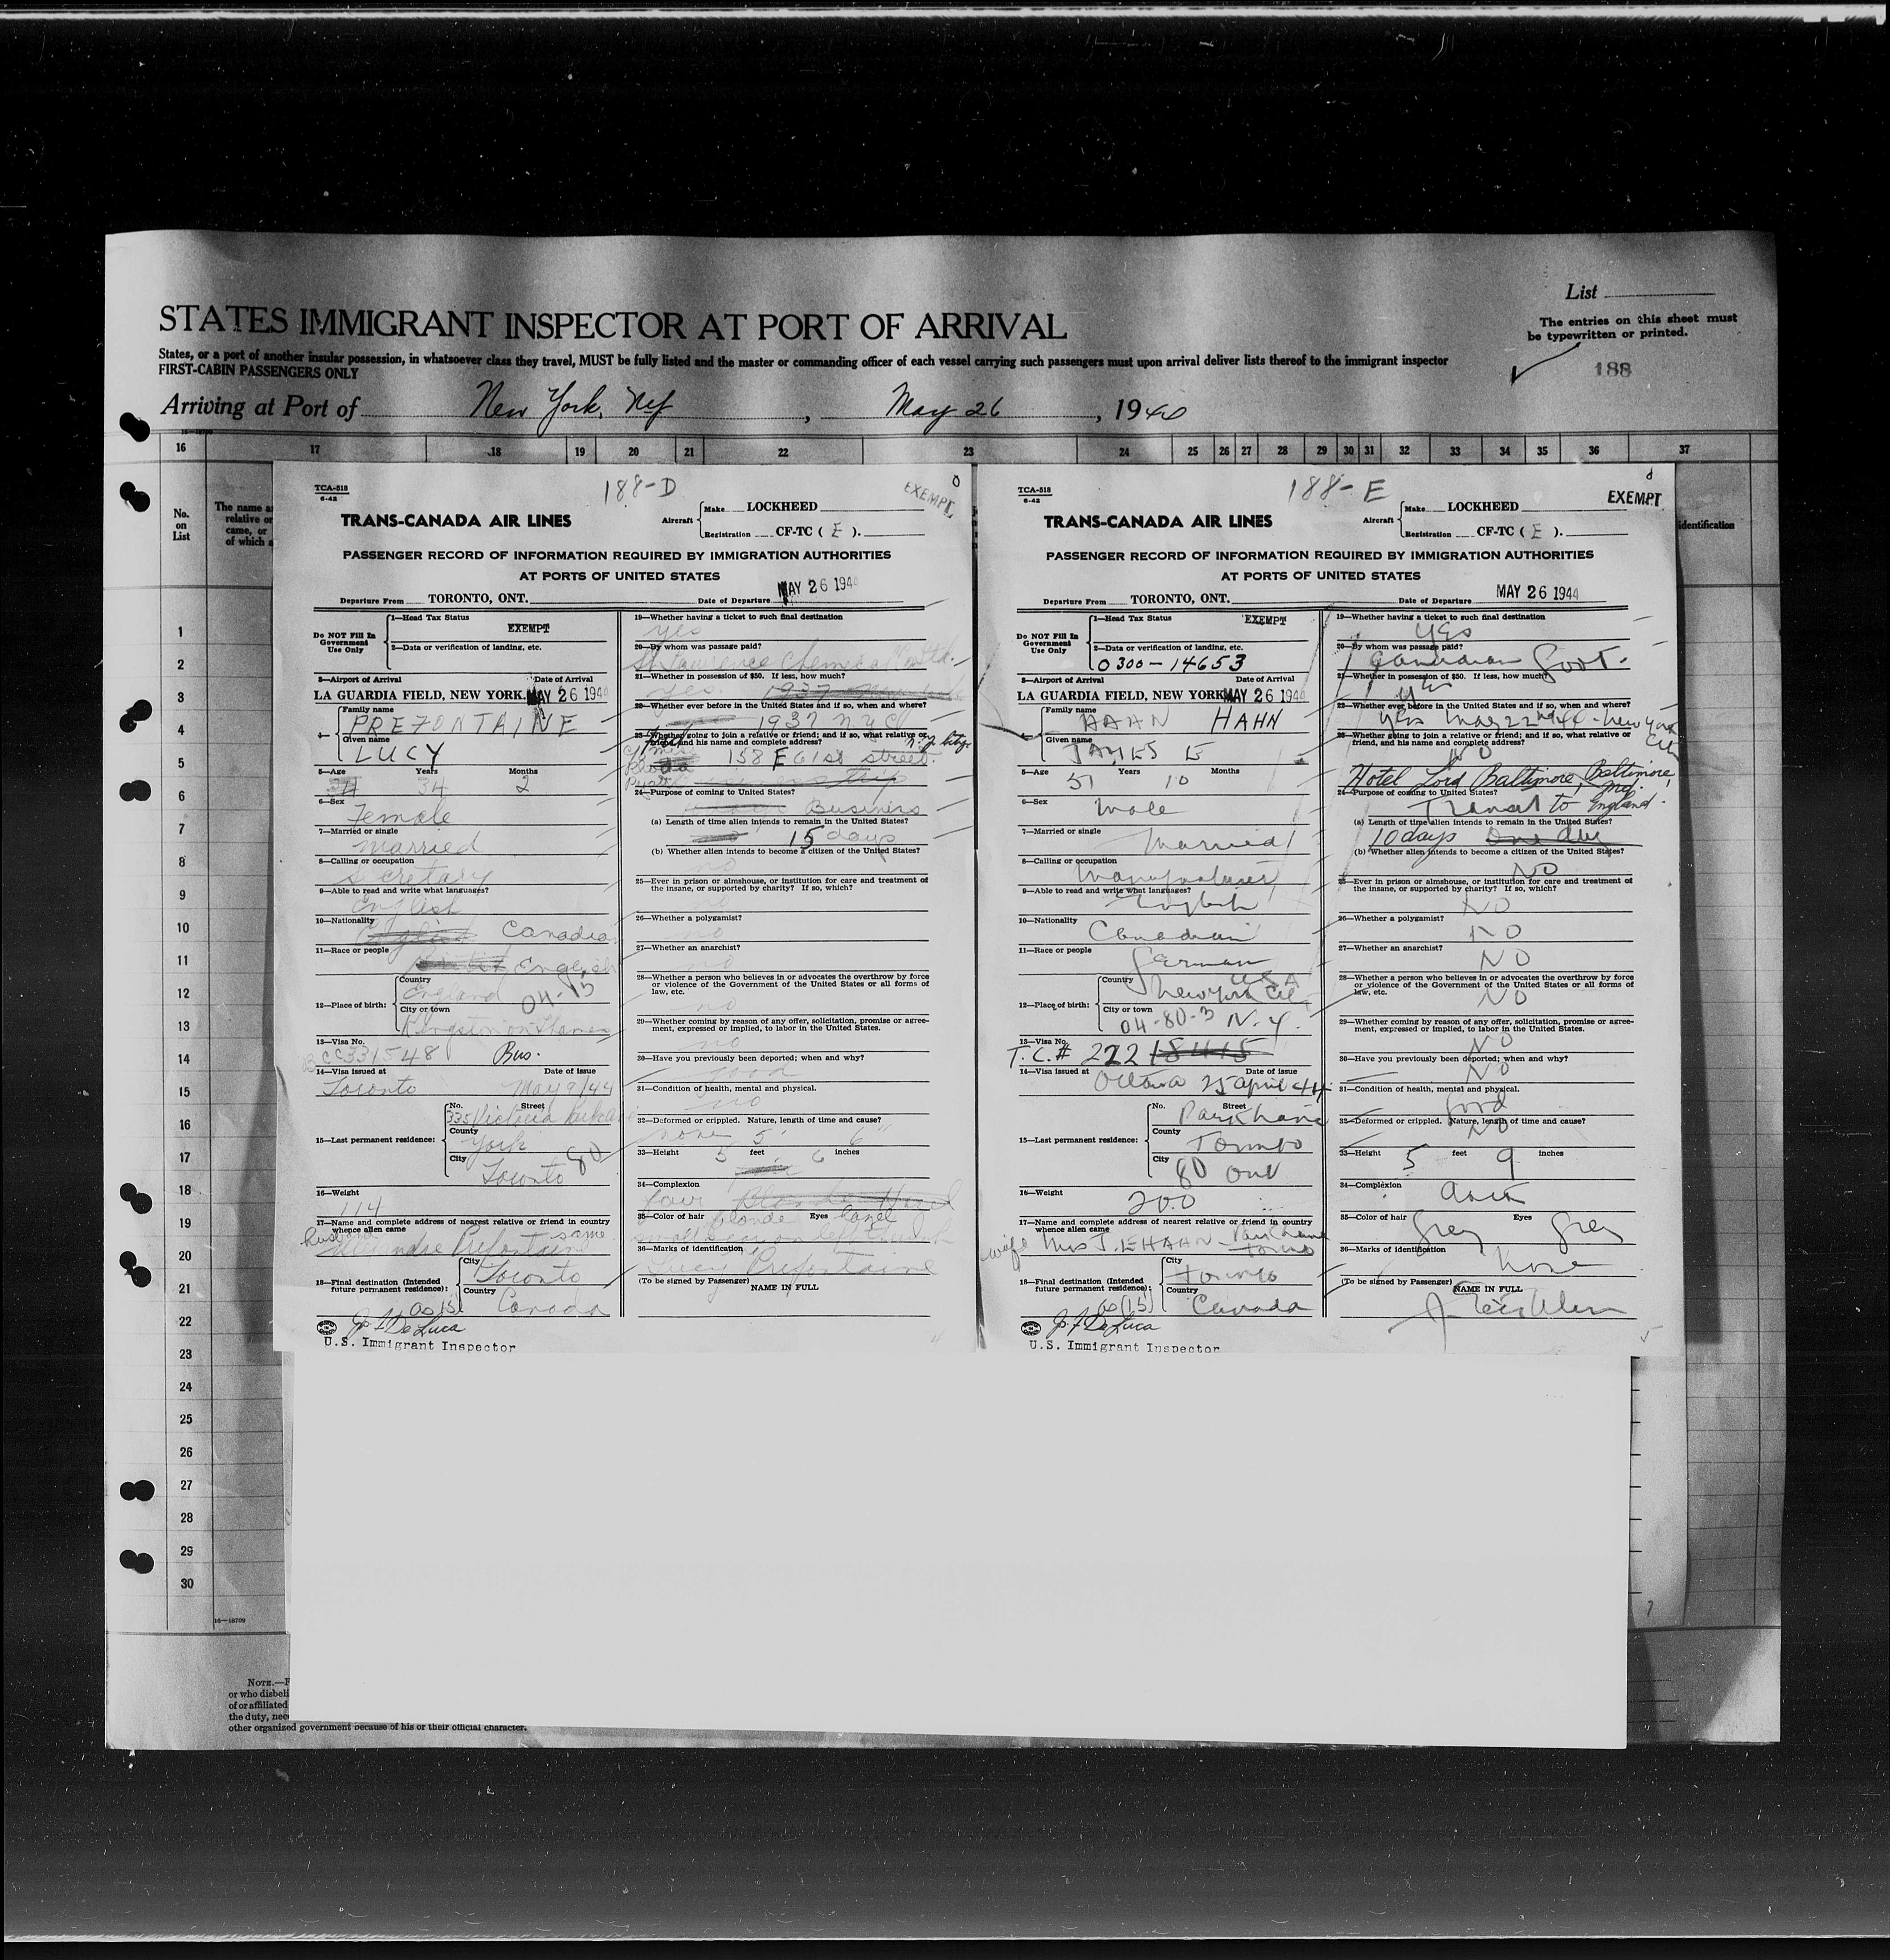 List
The entries on this sheet must
be typewritten or printed.
188
STATES IMMIGRANT INSPECTOR AT PORT OF ARRIVAL
States, or a port of another insular possession, in whatsoever class they travel, MUST be fully listed and the master or commanding officer of each vessel carrying such passengers must upon arrival deliver lists thereof to the immigrant inspector
FIRST-CABIN PASSENGERS ONLY
Arriving at Port of New York, NY, May 26, 1944
16 17 18 19 20 21 22 23 24 25 26 27 28 29 30 31 32 33 34 35 36 37
No. on List
The name a
relative or
came, or
of which a
identification
1
2
3
4
5
6
7
8
9
10
11
12
13
14
15
16
17
18
19
20
21
22
23
24
25
26
27
28
29
30
16—18709
NOTE.—F
or who disbeli
of or affiliated
the duty, nec
other organized government because of his or their official character.
TCA-518
6-42
188-D
EXEMPT
TRANS-CANADA AIR LINES
Aircraft
Make LOCKHEED
Registration CF-TC ( E ).
PASSENGER RECORD OF INFORMATION REQUIRED BY IMMIGRATION AUTHORITIES
AT PORTS OF UNITED STATES
Departure From TORONTO, ONT. Date of Departure MAY 26 1944
Do NOT Fill In
Government
Use Only
1—Head Tax Status
EXEMPT
2—Data or verification of landing, etc.
3—Airport of Arrival Date of Arrival
LA GUARDIA FIELD, NEW YORK. MAY 26 1944
4— Family name
PREFONTAINE
Given name
LUCY
5—Age Years Months
34 34 2
6—Sex
Female
7—Married or single
Married
8—Calling or occupation
Secretary
9—Able to read and write what languages?
English
10—Nationality
English Canadian
11—Race or people
English
12—Place of birth:
Country
England 04-15
City or town
Kingston on Thames
13—Visa No.
CC331548 Bus.
14—Visa issued at Date of issue
Toronto May 9/44
15—Last permanent residence:
No. Street
335 Victoria Park Ave
County
York
City
Toronto 80
16—Weight
114
17—Name and complete address of nearest relative or friend in country
whence alien came
husb same
Prefontaine
18—Final destination (Intended
future permanent residence):
City
Toronto
Country
Canada
J. F. De Luca
U.S. Immigrant Inspector
19—Whether having a ticket to such final destination
yes
20—By whom was passage paid?
St. Lawrence Chemical Co Ltd.
21—Whether in possession of $50. If less, how much?
yes. 1937
22—Whether ever before in the United States and if so, when and where?
1937 N.Y.C.
23—Whether going to join a relative or friend; and if so, what relative or
friend, and his name and complete address?
158 E 61st street. N.Y. City
24—Purpose of coming to United States?
Business
(a) Length of time alien intends to remain in the United States?
15 days
(b) Whether alien intends to become a citizen of the United States?
no
25—Ever in prison or almshouse, or institution for care and treatment of
the insane, or supported by charity? If so, which?
no
26—Whether a polygamist?
no
27—Whether an anarchist?
no
28—Whether a person who believes in or advocates the overthrow by force
or violence of the Government of the United States or all forms of
law, etc.
no
29—Whether coming by reason of any offer, solicitation, promise or agree-
ment, expressed or implied, to labor in the United States.
no
30—Have you previously been deported; when and why?
good
31—Condition of health, mental and physical.
no
32—Deformed or crippled. Nature, length of time and cause?
none 5' 6"
33—Height 5 feet 6 inches
34—Complexion
fair
35—Color of hair blonde Eyes hazel
36—Marks of identification
Lucy Prefontaine
(To be signed by Passenger) NAME IN FULL
TCA-518
6-42
188-E
EXEMPT
TRANS-CANADA AIR LINES
Aircraft
Make LOCKHEED
Registration CF-TC ( E ).
PASSENGER RECORD OF INFORMATION REQUIRED BY IMMIGRATION AUTHORITIES
AT PORTS OF UNITED STATES
Departure From TORONTO, ONT. Date of Departure MAY 26 1944
Do NOT Fill In
Government
Use Only
1—Head Tax Status
EXEMPT
2—Data or verification of landing, etc.
0300-14653
3—Airport of Arrival Date of Arrival
LA GUARDIA FIELD, NEW YORK MAY 26 1944
4— Family name
HAHN HAHN
Given name
JAMES E
5—Age Years Months
51 10
6—Sex
Male
7—Married or single
Married
8—Calling or occupation
Manufacturer
9—Able to read and write what languages?
English
10—Nationality
Canadian
11—Race or people
German
12—Place of birth:
Country USA
New York City
City or town
04-80-3 N.Y.
13—Visa No.
T.C.# 222 18415
14—Visa issued at Date of issue
Ottawa 25 April 44
15—Last permanent residence:
No. Street
Park Lane
County
Toronto
City
80 Ont
16—Weight
200
17—Name and complete address of nearest relative or friend in country
whence alien came
wife Mrs J. E HAHN - Park Lane
Toronto
18—Final destination (Intended
future permanent residence):
City
Toronto
Country
Canada
J. F. De Luca
U.S. Immigrant Inspector
19—Whether having a ticket to such final destination
Yes
20—By whom was passage paid?
Canadian Govt.
21—Whether in possession of $50. If less, how much?
Yes
22—Whether ever before in the United States and if so, when and where?
Yes May 22nd 44 - New York City
23—Whether going to join a relative or friend; and if so, what relative or
friend, and his name and complete address?
NO
Hotel Lord Baltimore, Baltimore, Md.
24—Purpose of coming to United States?
Transit to England.
(a) Length of time alien intends to remain in the United States?
10 days One day
(b) Whether alien intends to become a citizen of the United States?
NO
25—Ever in prison or almshouse, or institution for care and treatment of
the insane, or supported by charity? If so, which?
NO
26—Whether a polygamist?
NO
27—Whether an anarchist?
NO
28—Whether a person who believes in or advocates the overthrow by force
or violence of the Government of the United States or all forms of
law, etc.
NO
29—Whether coming by reason of any offer, solicitation, promise or agree-
ment, expressed or implied, to labor in the United States.
NO
30—Have you previously been deported; when and why?
NO
31—Condition of health, mental and physical.
Good
32—Deformed or crippled. Nature, length of time and cause?
NO
33—Height 5 feet 9 inches
34—Complexion
35—Color of hair Grey Eyes Grey
36—Marks of identification
None
(To be signed by Passenger) NAME IN FULL